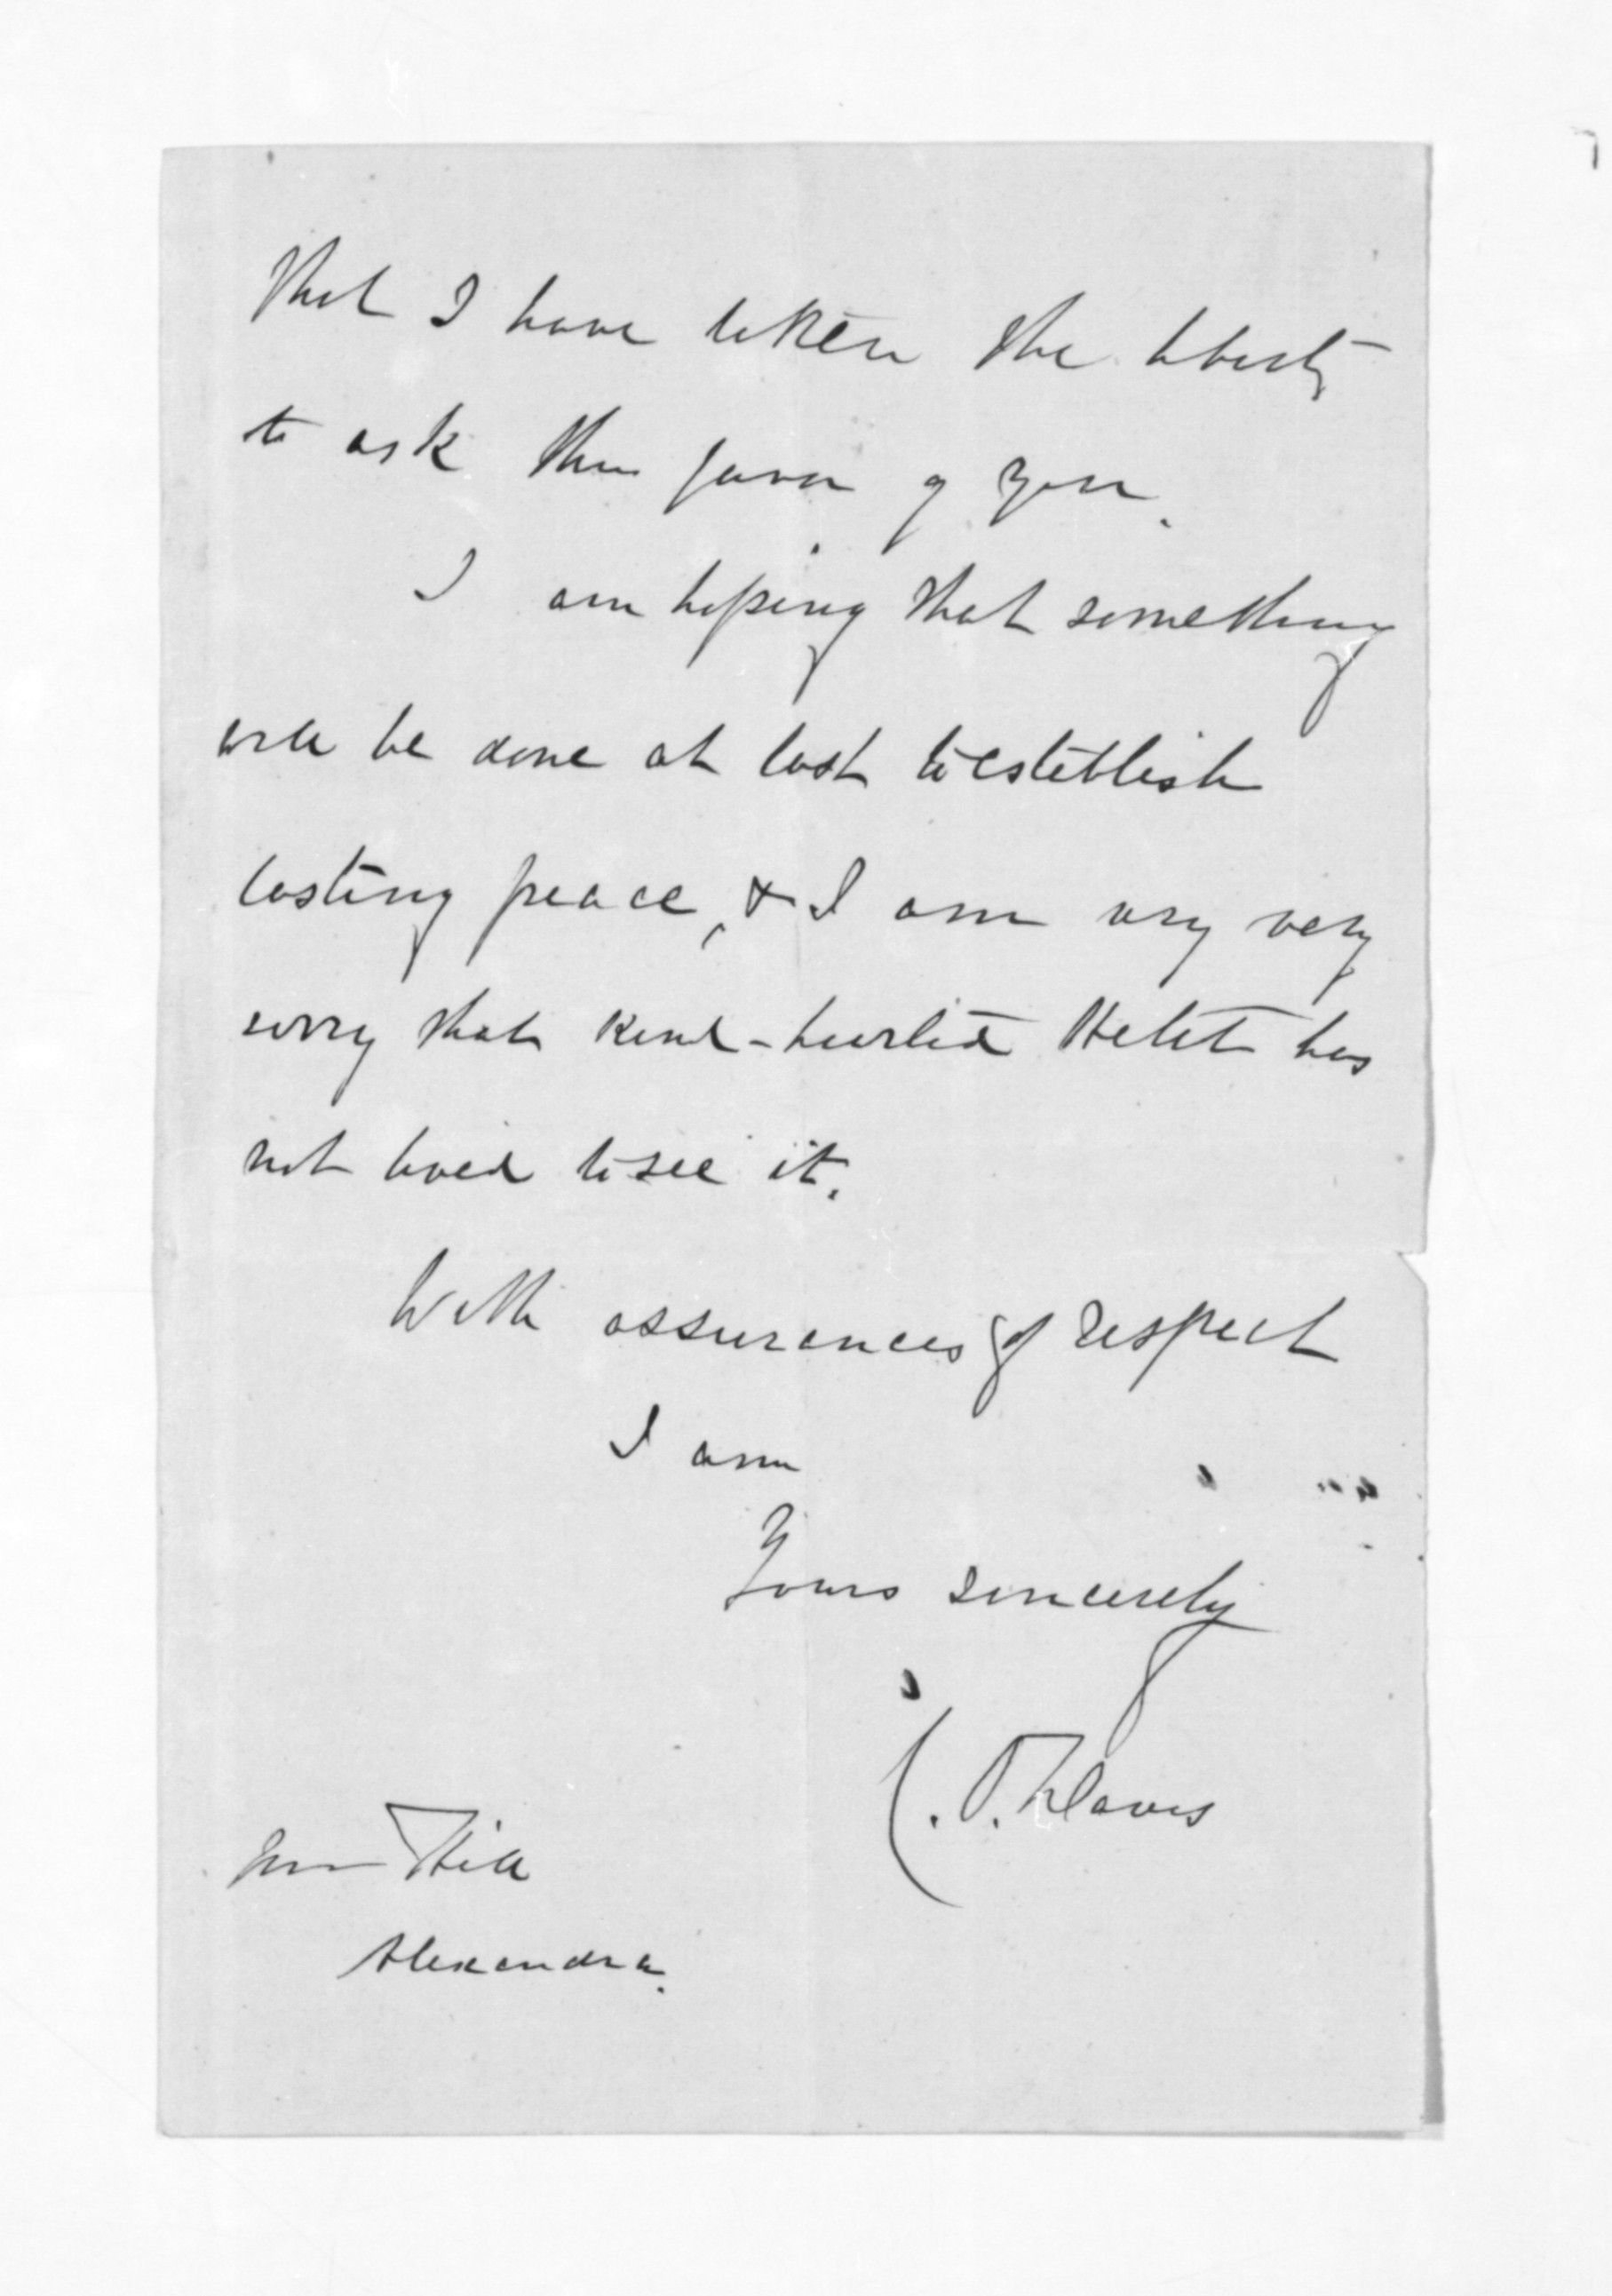 that I have taken the liberty
to ask this favor of you.
I am hoping that something
will be done at last to establish
lasting peace, & I am very very
sorry that kind-hearted has
not lived to see it.
With assurances of respect
I am
Yours sincerely
C. O. Davis
Hill
Alexandra.